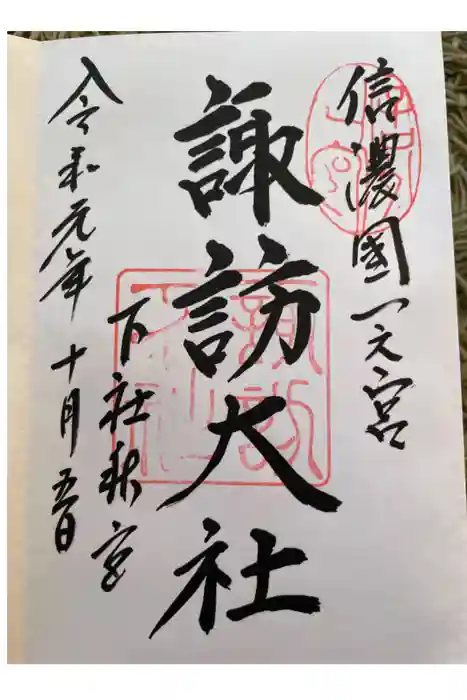 信濃國一之宮
諏訪大社
下社秋宮
令和元年十月五日